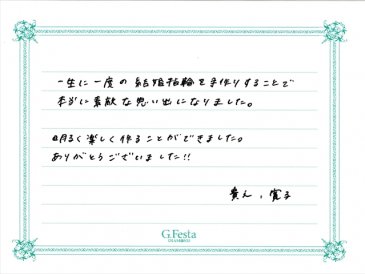 一生に一度の結婚指輪を手作りすることで
本当に素敵な思い出になりました。
明るく楽しく作ることができました。
ありがとうございました!!
G.Festa